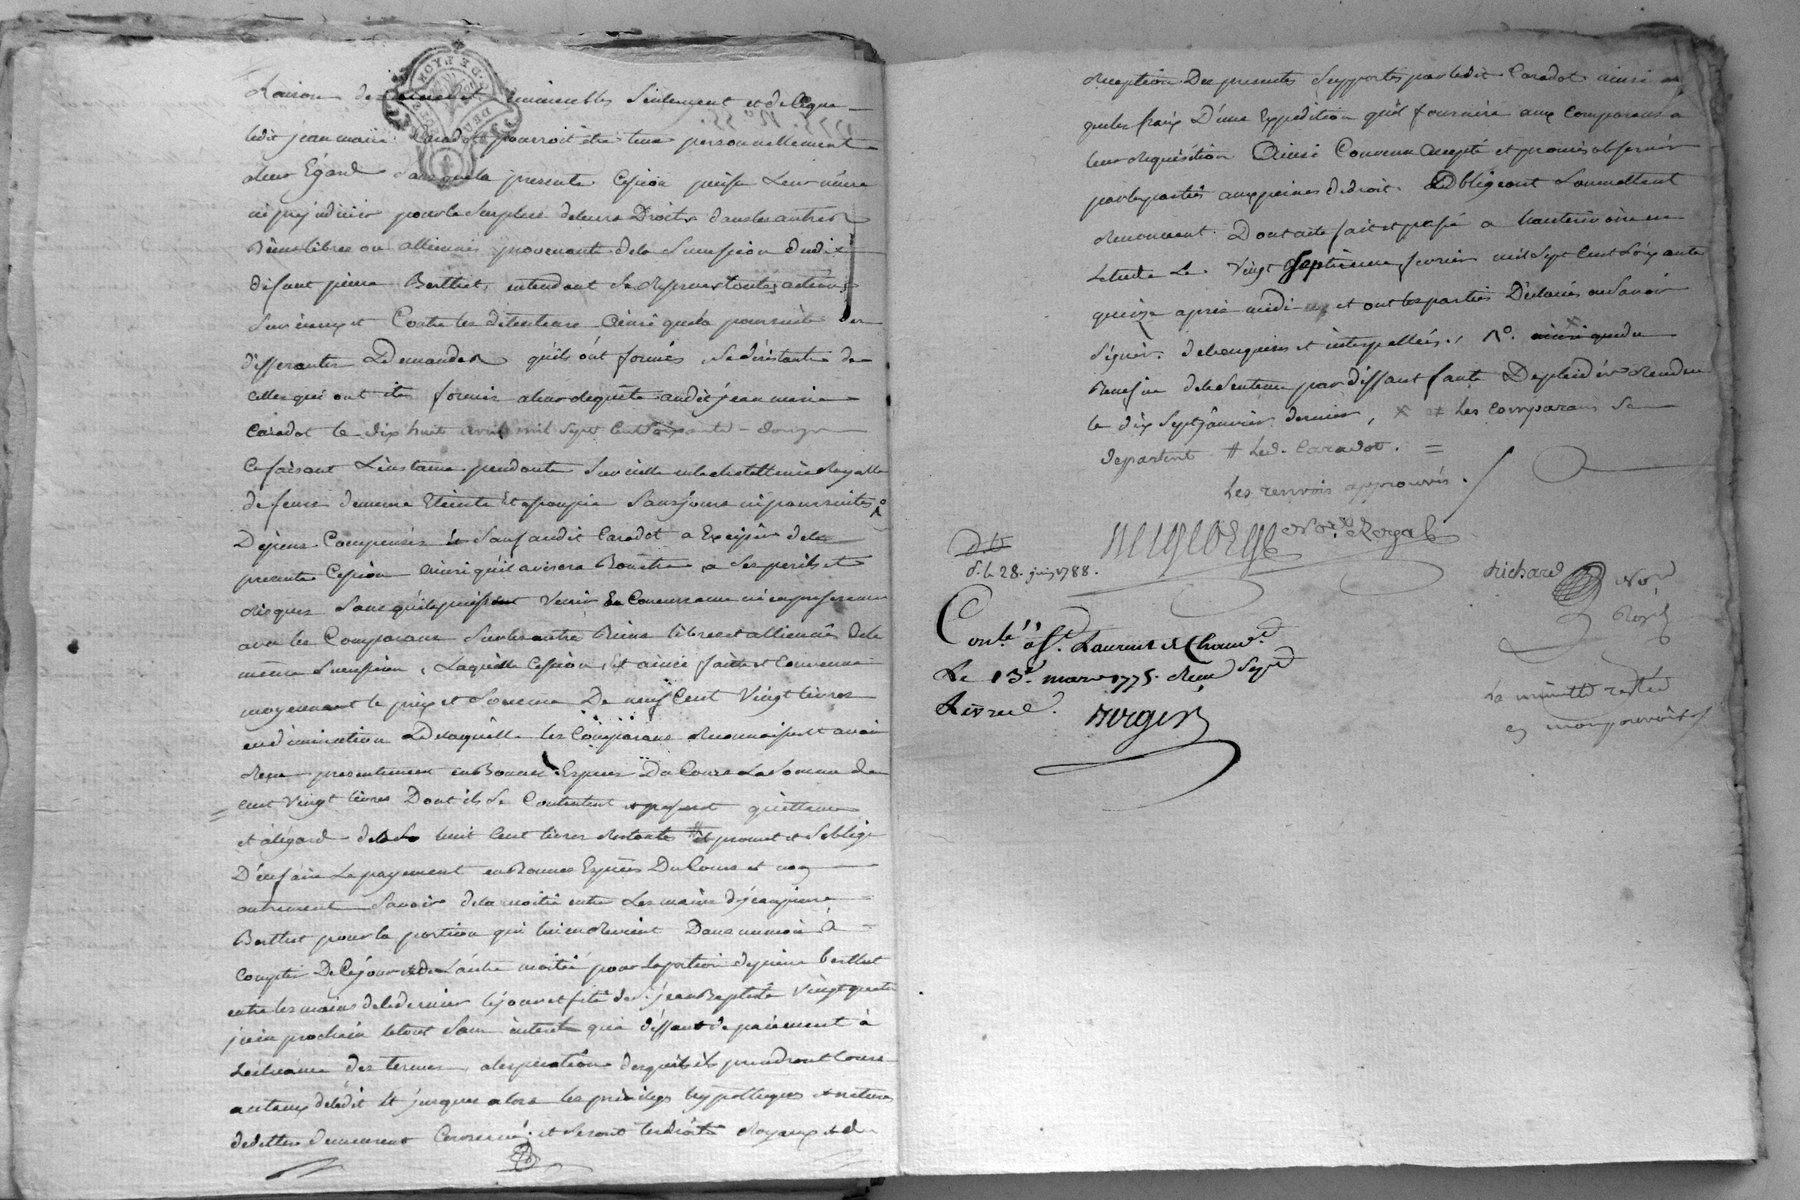 Raison des immeubles seulement et delaque
ledit jean marie Caradot pourroit être tenu personnellement
a leur Egard sans que la presente Cession puisse Leur nuire
ni prejudicier pour le surplus de leurs Droits dans les autres
Biens libres ou alliennés provenants de la succession dudit
defunt pierre Berthet, entendant se reserver toutes actions
Contre les détenteurs ainsi que la poursuite des
differantes Demandes qu'ils ont formés se desistants de
celles qui ont été formés a leur requête audit jean marie
Caradot le dix huit avril mil sept Cent soixante douze
Ce faisant L'instance pendante sur icelle en la chatellenie Royalle
de feurs demeure Eteinte Et assoupie sans jours ni poursuites
Depens Compensés sauf audit Caradot a Exciper de la
presente Cession ainsi qu'il avisera Bon être a ses perils et
risques sans qu'il puissent venir En Concurrance ni en preferance
avec les Comparans sur les autres Biens libres et alliennés de la
même succession, Laquelle Cession, Est ainsi faite et Convenue
moyennant le prix et somme De neuf Cent vingt livres
en diminution De laquelle les Comparans reconnoissent avoir
reçu presentement en Bonnes Espèces Du Cours La somme de
cent vingt livres Dont ils se Contentent et passent quittance
et a l'égard de les huit Cent livres restante # il promet et s'oblige
D'en faire Le payement en Bonnes Espèces Du Cours et non
autrement savoir de la moitié entre Les mains de jean pierre
Berthet pour la portion qui lui en revient Dans un mois à
compter De Ce jour et de L'autre moitié pour La portion de pierre berthet
entre les mains de ce dernier le jour et fête de st jean Baptiste vingt quatre
juin prochain le tout sans interet qu'a deffaut de paiement à
L'échéance des termes, a l'expiration desquels ils prendront Cours
au taux de l'édit Et jusques alors les privileges hypotheques et nature
de dettes demeurent Conservés et seront les droits Royaux et de
reception Des presentes supportés par ledit Caradot ainsi
que les fraix D'une Expedition qu'il fournira aux Comparans a
leur requisition Ainsi Convenu accepté et promis observer
par les parties aux peines de droit Obligeant soumettant
Renonceant. Dont acte fait et passé a hauterivoire en
L'etude Le vingt septieme fevrier mil sept Cent soixante
quinze après midi et ont les parties Declarés ne savoir
signer. de ce enquises et interpellées. / ainsi que du
Benefice de la sentence par deffaut faute De plaider rendue
le dix sept janvier dernier, x et les comparans se
departent # led. Caradot. =
Les renvois approuvés. /
Nore Royal
Richard Nore
Royal
D. L.
d. le 28. juin 1788.
Conlé à St. Laurent de Chamt.
Le 13e. mars 1775. Reçu sept
livres
La minutte restée
en mon pouvoir